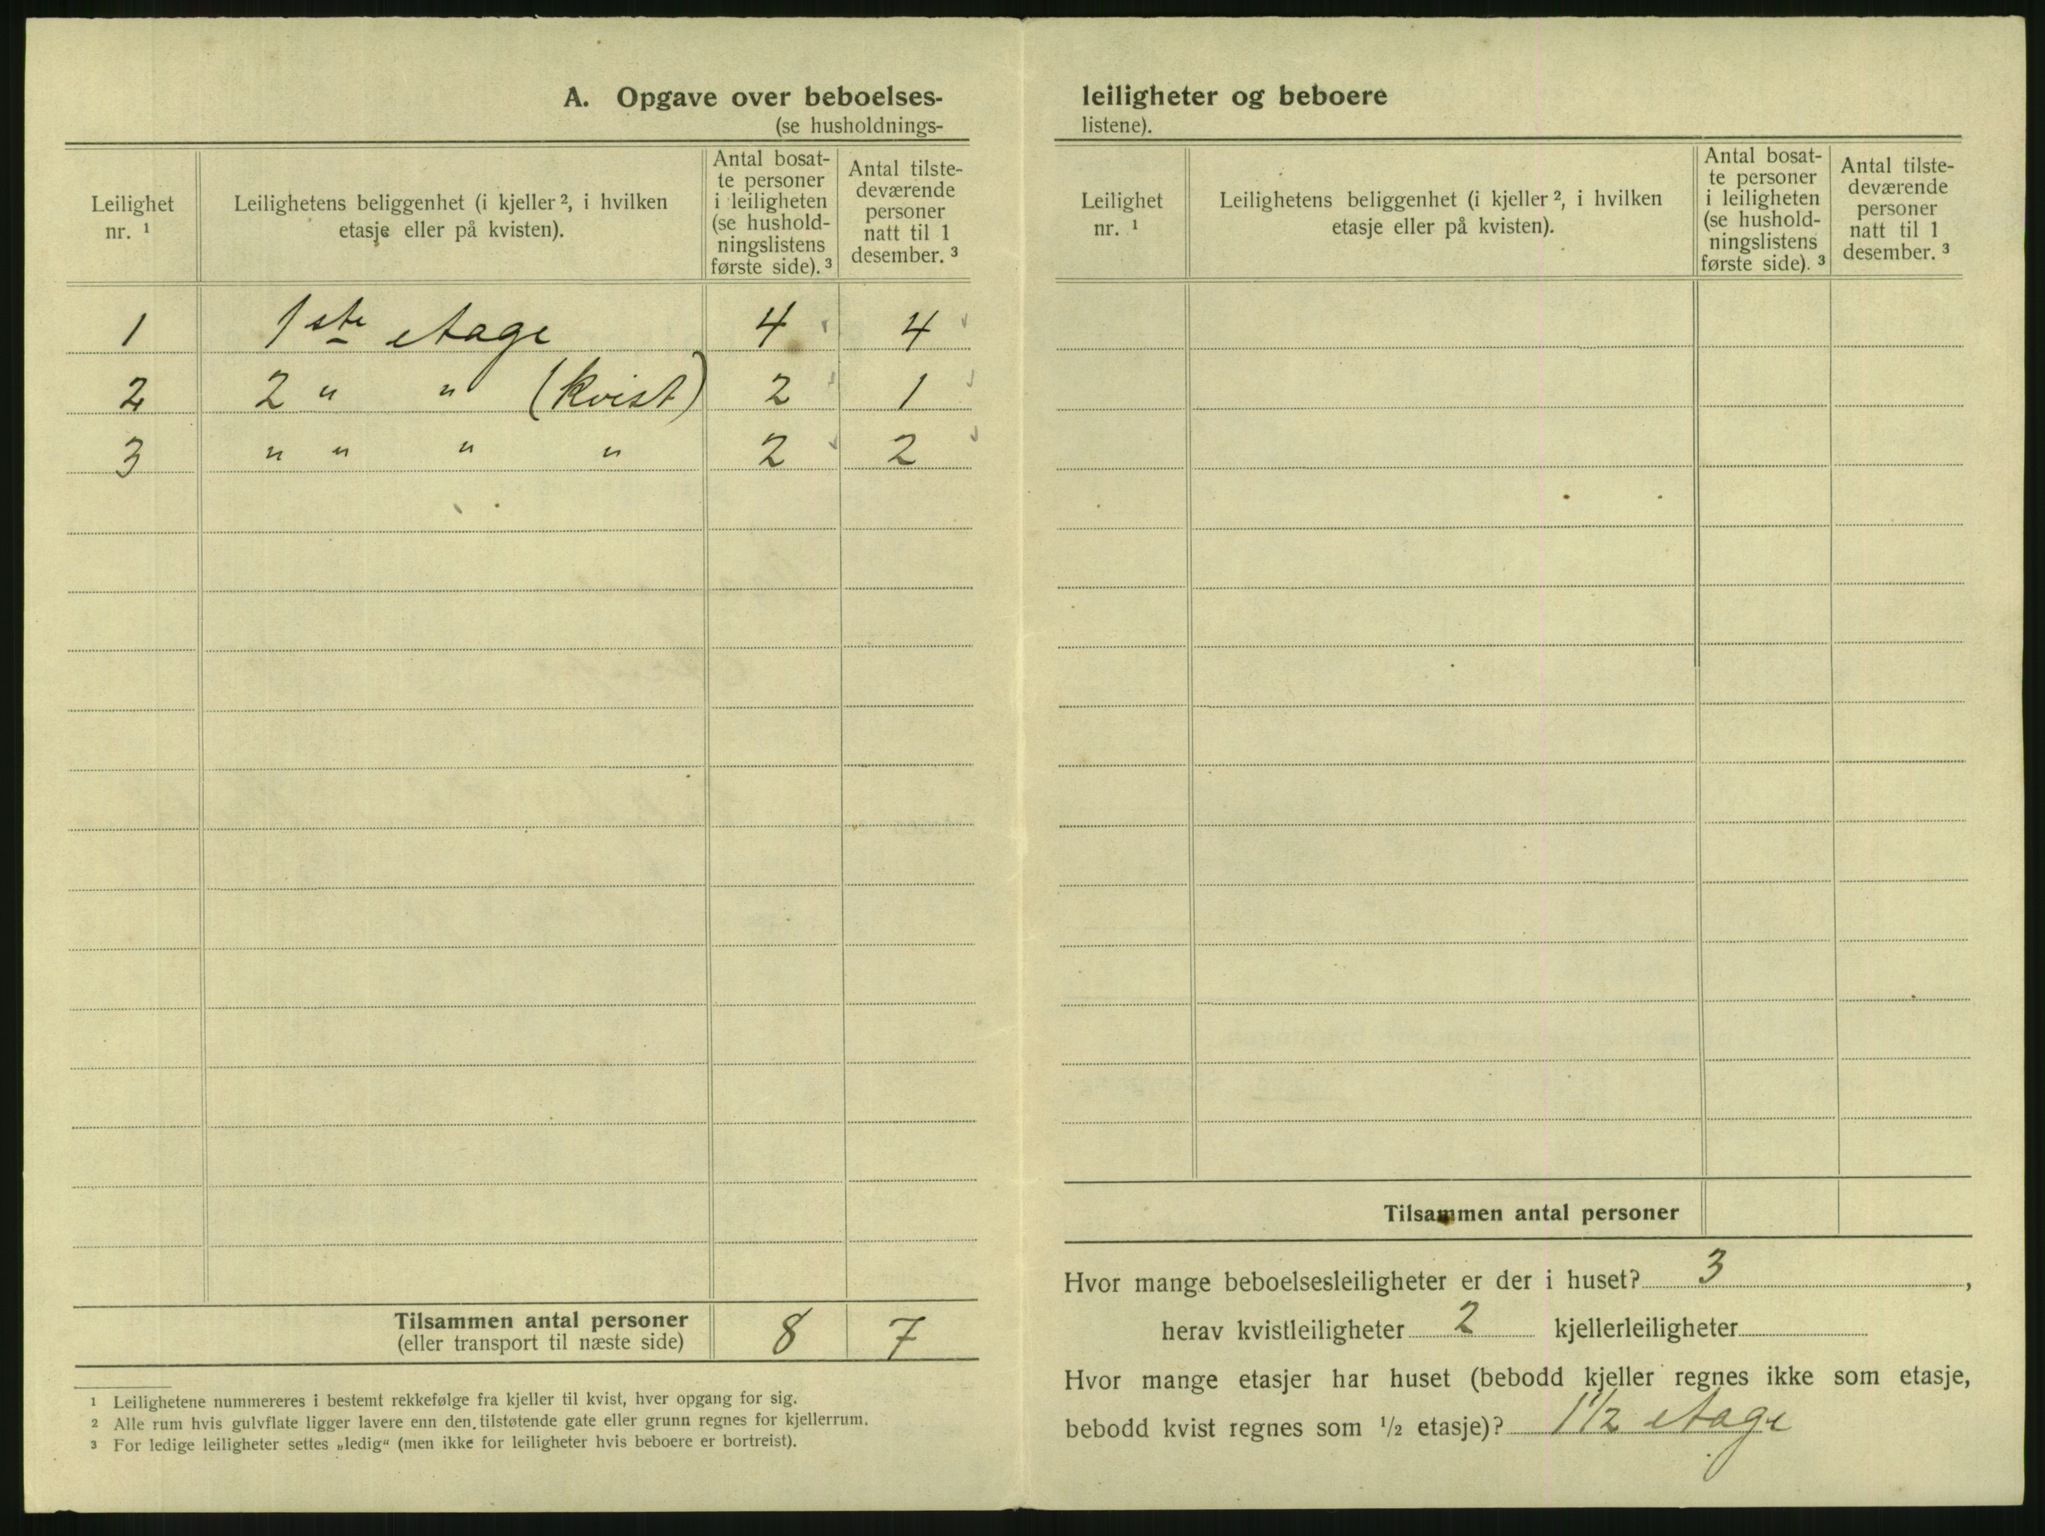 A. Opgave over beboelses-
(se husholdnings-
Leilighet nr. ¹
Leilighetens beliggenhet (i kjeller ², i hvilken
etasje eller på kvisten).
Antal bosat-
te personer
i leiligheten
(se hushold-
ningslistens
første side). ³
Antal tilste-
deværende
personer
natt til 1
desember. ³
1 1ste etage 4 4
2 2 " " (kvist) 2 1
3 " " " " 2 2
Tilsammen antal personer 8 7
(eller transport til næste side)
¹ Leilighetene nummereres i bestemt rekkefølge fra kjeller til kvist, hver opgang for sig.
² Alle rum hvis gulvflate ligger lavere enn den tilstøtende gate eller grunn regnes for kjellerrum.
³ For ledige leiligheter settes „ledig“ (men ikke for leiligheter hvis beboere er bortreist).
leiligheter og beboere
listene).
Leilighet
nr. ¹
Leilighetens beliggenhet (i kjeller ², i hvilken
etasje eller på kvisten).
Antal bosat-
te personer
i leiligheten
(se hushold-
ningslistens
første side). ³
Antal tilste-
deværende
personer
natt til 1
desember. ³
Tilsammen antal personer
Hvor mange beboelsesleiligheter er der i huset? 3 ,
herav kvistleiligheter 2 kjellerleiligheter
Hvor mange etasjer har huset (bebodd kjeller regnes ikke som etasje,
bebodd kvist regnes som ½ etasje)? 1½ etage